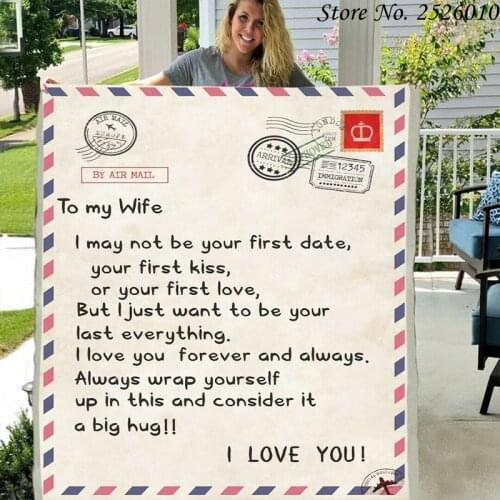 Store No. 2526010
AIR MAIL
LONDON
ARRIVED
12345
IMMIGRATION
BY AIR MAIL
To my Wife
I may not be your first date,
your first kiss,
or your first love,
But I just want to be your
last everything.
I love you forever and always.
Always wrap yourself
up in this and consider it
a big hug!!
I LOVE YOU!